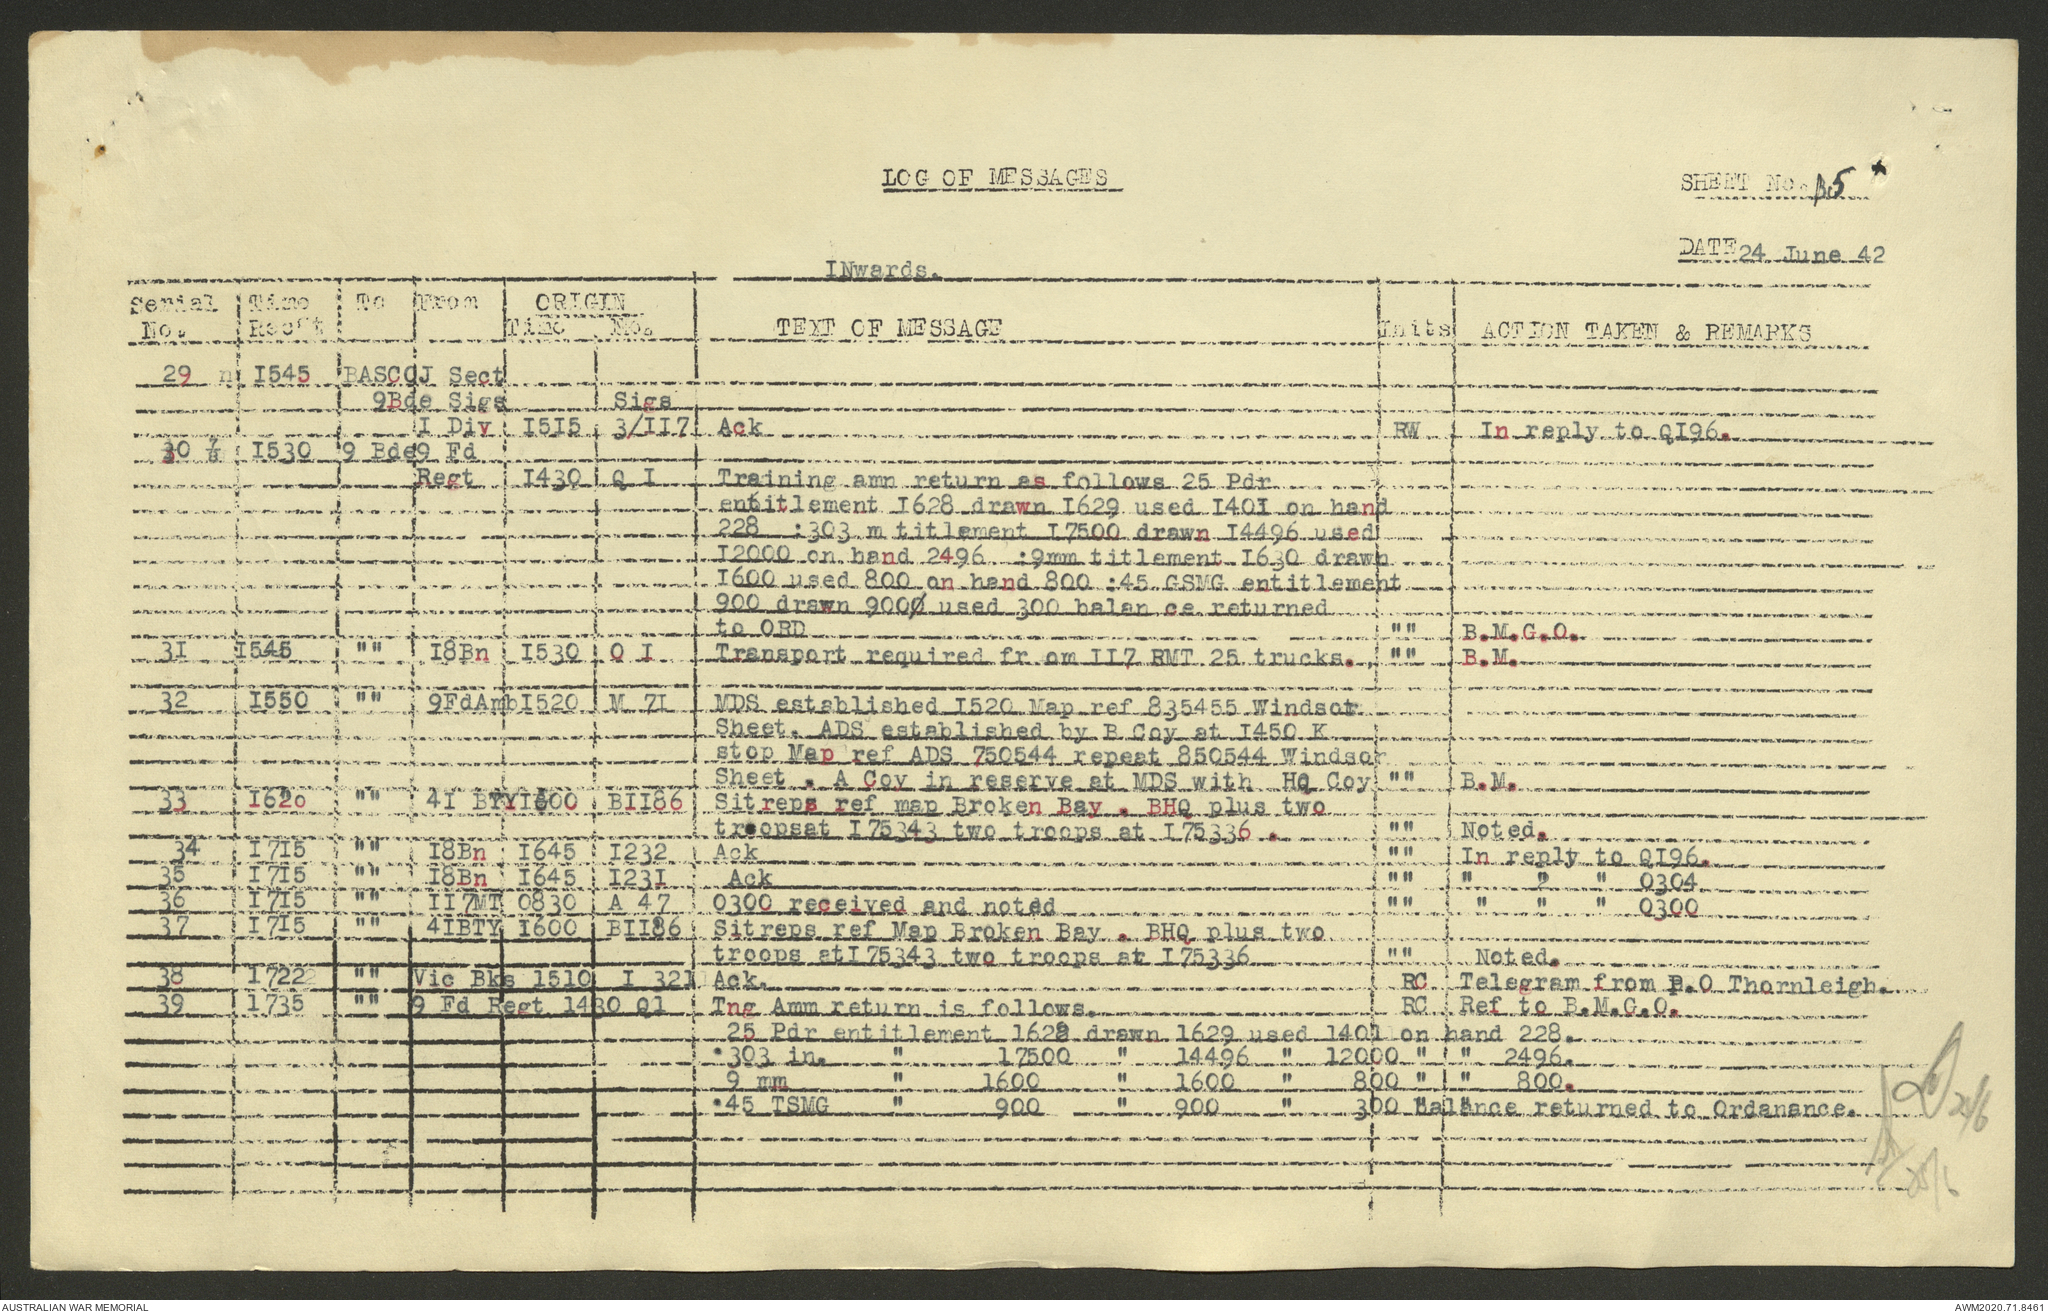 LOG OF MESSAGES
SHEET No. 5
DATE 24 June 42
INwards.
Serial Time To From ORIGIN
No. Rec't Time No. TEXT OF MESSAGE Inits ACTION TAKEN & REMARKS
29 I545 BASCOJ Sect
9Bde Sigs Sigs
I Div I5I5 3/II7 Ack RW In reply to QI96.
30 I530 9 Bde 9 Fd
Regt I430 Q I Training amn return as follows 25 Pdr
entitlement I628 drawn I629 used I40I on hand
228 :303 m titlement I7500 drawn I4496 used
I2000 on hand 2496 :9mm titlement I630 drawn
I600 used 800 on hand 800 :45 GSMG entitlement
900 drawn 900 used 300 balan ce returned
to ORD "" B.M.G.O.
3I I545 "" I8Bn I530 O I Transport required fr om II7 RMT 25 trucks. "" B.M.
32 I550 "" 9FdAmb I520 M 7I MDS established I520 Map ref 835455 Windsor
Sheet. ADS established by B Coy at I450 K
stop Map ref ADS 750544 repeat 850544 Windsor
Sheet . A Coy in reserve at MDS with HQ Coy "" B.M.
33 I620 "" 4I BTY I600 BII86 Sitreps ref map Broken Bay . BHQ plus two
troopsat I75343 two troops at I75336 . "" Noted.
34 I7I5 "" I8Bn I645 I232 Ack "" In reply to QI96.
35 I7I5 "" I8Bn I645 I23I Ack "" " " " 0304
36 I7I5 "" II7MT 0830 A 47 0300 received and noted "" " " " 0300
37 I7I5 "" 4IBTY I600 BII86 Sitreps ref Map Broken Bay . BHQ plus two
troops atI75343 two troops at I75336 "" Noted.
38 I722 "" Vic Bks 1510 I 321 Ack. RC Telegram from P.O Thornleigh.
39 1735 "" 9 Fd Regt 1430 Q1 Tng Amm return is follows. RC Ref to B.M.G.O.
25 Pdr entitlement 1628 drawn 1629 used 1401 on hand 228.
.303 in. " 17500 " 14496 " 12000 " " 2496.
9 mm " 1600 " 1600 " 800 " " 800.
.45 TSMG " 900 " 900 " 300 Balance returned to Ordanance.
25/6
AUSTRALIAN WAR MEMORIAL
AWM2020.71.8461